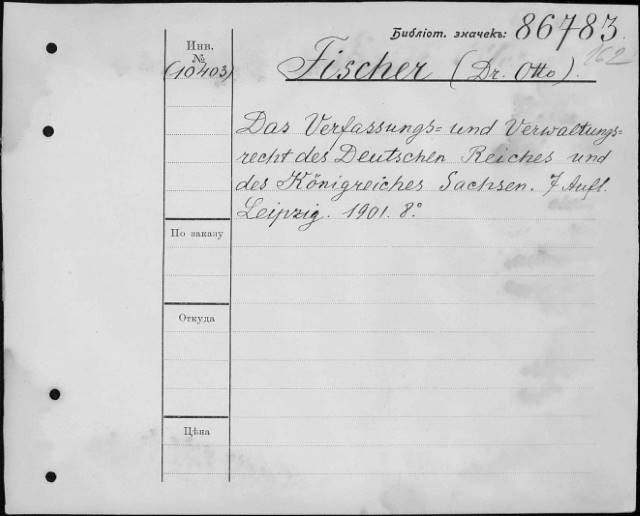 Библіот. значекъ: 86783.
162
Инв.
№
(10403)
Fischer (Dr. Otto).
Das Verfassungs= und Verwaltungs=
recht des Deutschen Reiches und
des Königreiches Sachsen. 7 Aufl.
Leipzig. 1901. 8.°
По заказу
Откуда
Цѣна